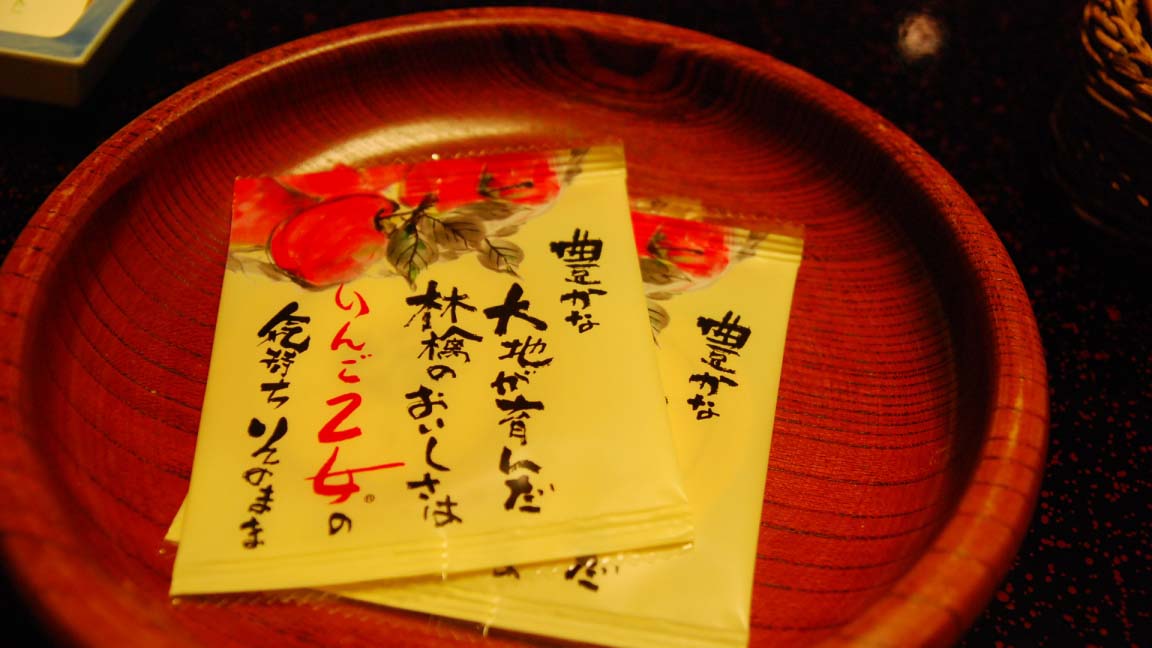 豊かな
大地が育んだ
林檎のおいしさは
りんご乙女®の
気持ちそのまま
豊かな
だ